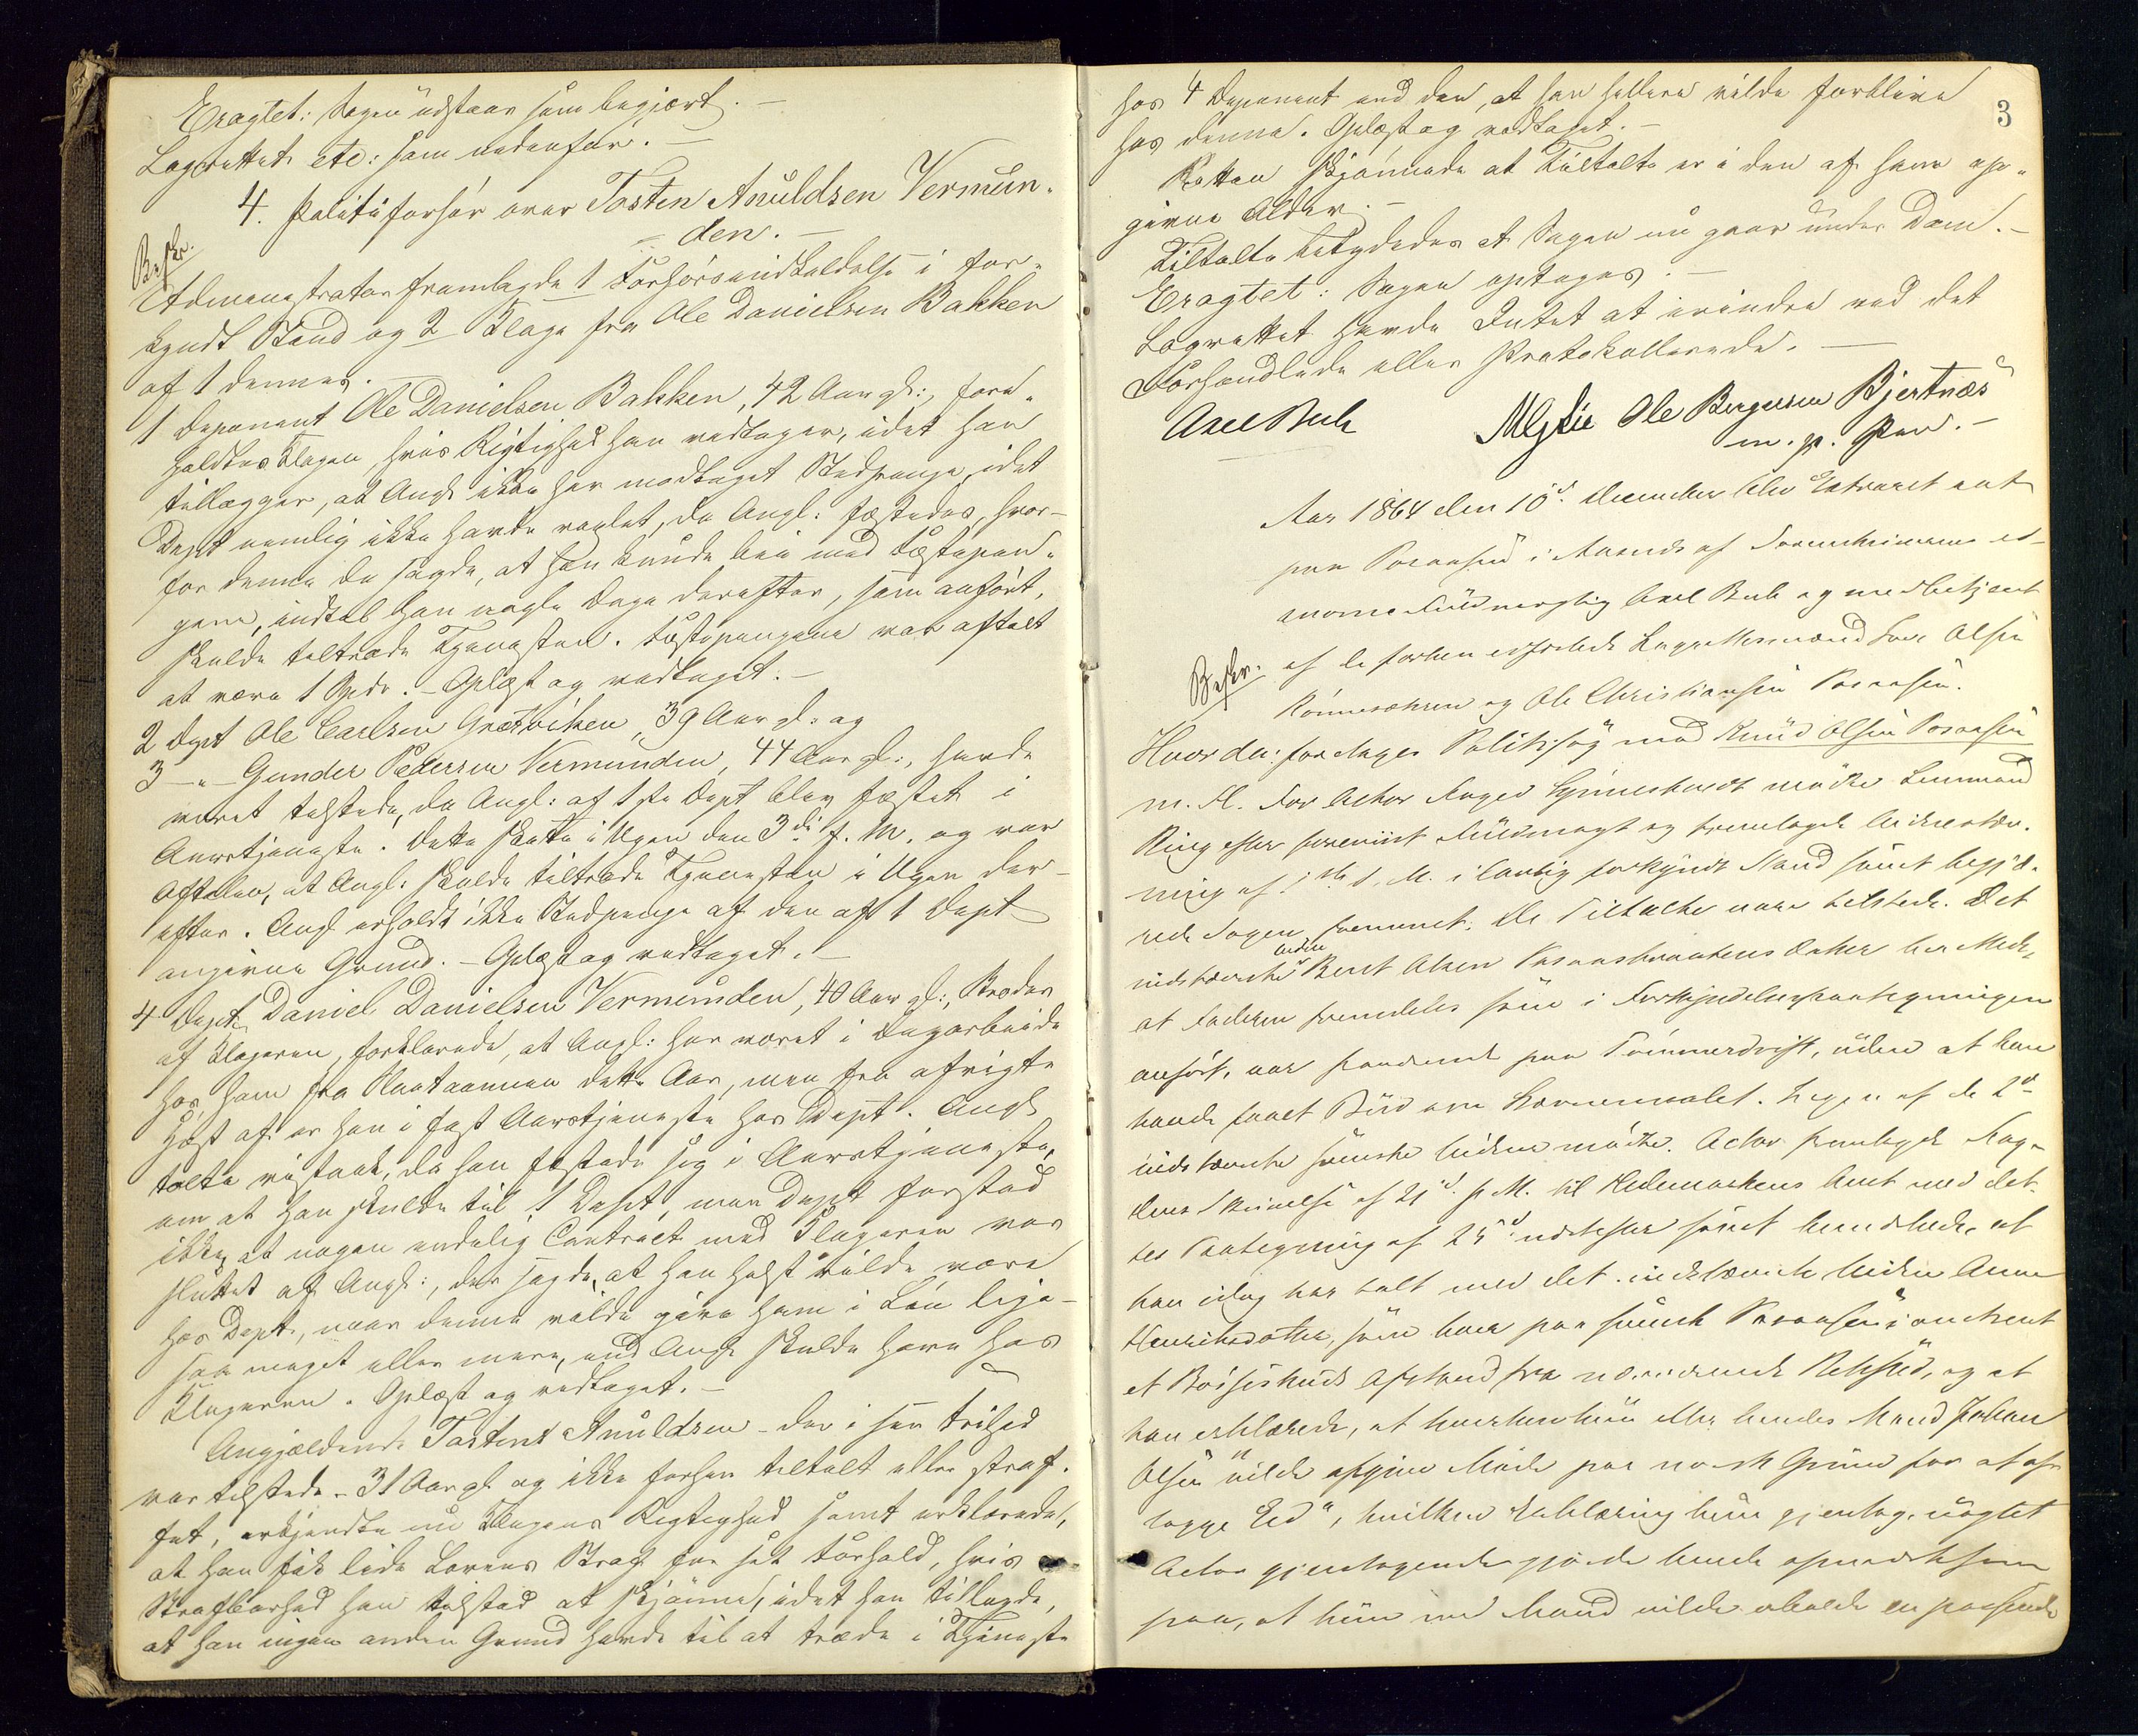 Eragtet: Sagen udstaar som begjært. —
Lagrettet etc: som nedenfor. —
4. Politiforhør over Tosten Anuldsen Vermun-
den. —
Beskr.
Administrator fremlagde 1 Forhørsindkaldelse i for-
kyndt Stand og 2 Klage fra Ole Danielsen Bakken
af 1 dennes. —
1 Deponent Ole Danielsen Bakken, 42 Aar gl:, fore-
holdtes Klagen, hvis Rigtighed han vedtager, idet han
tillægger, at Angl ikke har modtaget Stedpenge, idet
Dept nemlig ikke havde vexlet, da Angl: fæstedes, hvor-
for denne da sagde, at han kunde bie med Fæstepen-
gene, indtil han nogle Dage derefter, som anført,
skulde tiltræde Tjenesten. Fæstepengene var aftalt
at være 1 Spdr. — Oplæst og vedtaget. —
2 Dept Ole Carlsen Græsviken, 39 Aar gl: og
3 — " — Gunder Pedersen Vermunden, 44 Aar gl:, havde
været tilstede, da Angl: af 1ste Dept blev fæstet i
Aarstjeneste. Dette skete i Ugen den 3die f. M. og var
Aftalen, at Angl: skulde tiltræde Tjenesten i Ugen der-
efter. Angl erholdt ikke Stedpenge af den af 1 Dept
angivne Grund. — Oplæst og vedtaget. —
4 Dept Daniel Danielsen Vermunden, 40 Aar gl:, Broder
af Klageren, forklarede, at Angl: har været i Dagarbeide
hos ham fra Slaataannen dette Aar, men fra afvigte
Høst af er han i fast Aarstjeneste hos Dept. Angl
talte vistnok, da han fæstede sig i Aarstjeneste,
om at han skulde til 1 Dept, men Dept forstod
ikke, at nogen endelig Contract med Klageren var
sluttet af Angl:, der sagde, at han helst vilde være
hos Dept, naar denne vilde give ham i Løn lige-
saa meget eller mere, end Angl skulde have hos
Klageren. Oplæst og vedtaget. —
Angjældende Tosten Anuldsen — der i sin Frihed
var tilstede — 31 Aar gl og ikke forhen tiltalt eller straf-
fet, erkjendte nu Klagens Rigtighed samt erklærede,
at han fik lide Lovens Straf for sit Forhold, hvis
Strafbarhed han tilstod at skjønne, idet han tillagde,
at han ingen anden Grund havde til at træde i Tjeneste
3
hos 4 Deponent end den, at han hellere vilde forblive
hos denne. Oplæst og vedtaget. —
Retten skjønnede at Tiltalte er i den af ham op-
givne Alder. —
Tiltalte betydedes at Sagen nu gaar under Dom. —
Eragtet: Sagen optages. —
Lagrettet havde Intet at erindre ved det
Forhandlede eller Protokollerede. —
Axel Buch MGLie Ole Bergersen Bjertnæs
m. p. Pen. —
Aar 1864 den 10d. December blev Extraret sat
paa Posaasen i Aasnds af Sorenskriverens
Fuldmægtig Axel Buch og med betjent
Beskr.
af de forhen edfæstede Lagrettesmænd Ole Olsen
Rønnesæteren og Ole Christiansen Posaasen.
Hvorda: foretages Politisag mod Knud Olsen Posaasen
m. Fl. For Actor Foged mødte Lensmand
Ring efter forevist Fuldmagt og fremlagde Vidnestev-
ning af d. M. i lovlig forkyndt Stand samt begjæ-
rede Sagen fremmet. De Tiltalte vare tilstede. Det
indstævnte Vidne Beret Olsen Posaasbraatens Datter lod Melde,
at Faderen fremdeles som i Forkyndelsespaategningen
anført, var fraværende paa Tømmerdrift, uden at have
havde faaet Bud om Varselet. Ingen af de 2de
indstævnte svenske Vidner mødte. Actor fremlagde Fog-
dens Skrivelse af 21d. f. M. til Hedemarkens Amt med det-
tes Paategning af 25d næstefter samt bemærkede, at
han idag har talt med det indstævnte Vidne Anne
Henriksdatter, som boer paa svensk Posaasen i omtrent
et Bøsseskuds Afstand fra nærværende Rettssted, og at
hun erklærede, at hverken hun eller hendes Mand Johan
Olsen "vilde afgive Møde paa norsk Grund for at af-
lægge Ed", hvilken Erklæring hun gjentog, uagtet
Actor gjentagende gjorde hende opmærksom
paa, at hun med Mand vilde erholde en passende